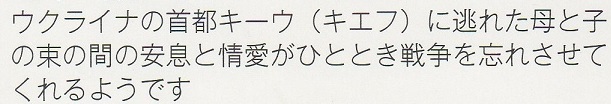 ウクライナの首都キーウ（キエフ）に逃れた母と子
の束の間の安息と情愛がひととき戦争を忘れさせて
くれるようです